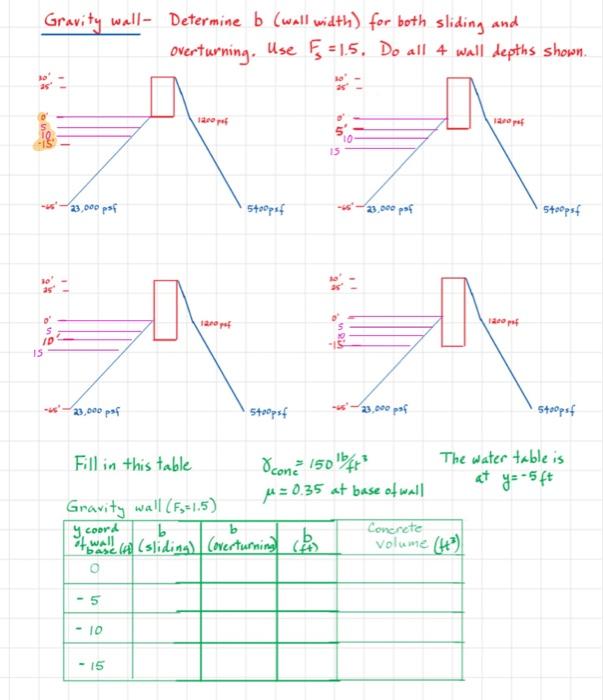 Gravity wall- Determine b (wall width) for both sliding and
overturning. Use Fs = 1.5. Do all 4 wall depths shown.
30'
25'
0'
5
10
-15'
1200 psf
-65' 23,000 psf
5400psf
30'
25'
0'
5'
10
15
1200 psf
-65' 23,000 psf
5400psf
30'
25'
0'
5
10'
15
1200 psf
-65' 23,000 psf
5400psf
30'
25'
0'
5
10
-15'
1200 psf
-65' 23,000 psf
5400psf
Fill in this table
γconc = 150 lb/ft³
μ = 0.35 at base of wall
The water table is
at y = -5 ft
Gravity wall (Fs=1.5)
y coord of wall base (ft) b (sliding) b (overturning) b (ft) Concrete volume (ft³)
0
- 5
- 10
- 15